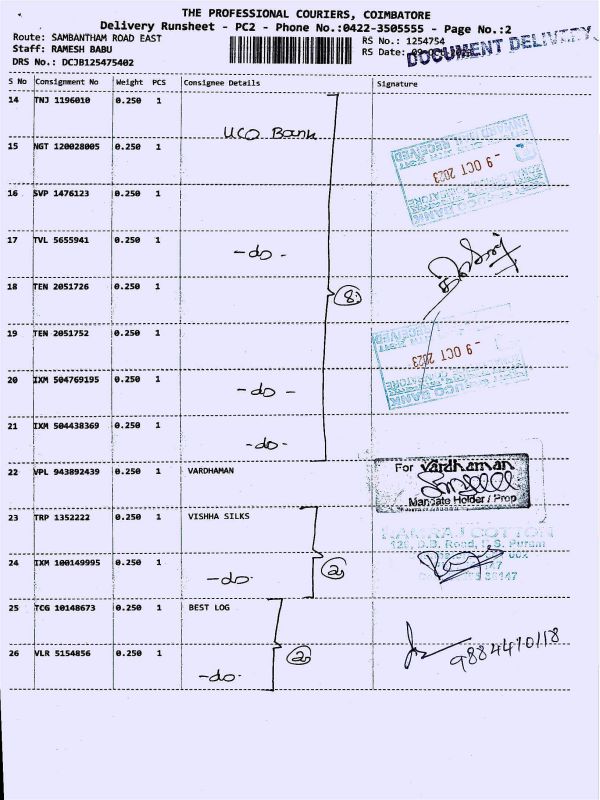 THE PROFESSIONAL COURIERS, COIMBATORE
Delivery Runsheet - PC2 - Phone No.:0422-3505555 - Page No.:2
Route: SAMBANTHAM ROAD EAST
RS No.: 1254754
Staff: RAMESH BABU
RS Date:
DOCUMENT DELIVERY
DRS No.: DCJB125475402
S No Consignment No Weight PCS Consignee Details Signature
14 TNJ 1196010 0.250 1
UCO Bank
15 NGT 120028005 0.250 1
RECEIVED
- 9 OCT 2023
UCO BANK
16 SVP 1476123 0.250 1
17 TVL 5655941 0.250 1
-do-
18 TEN 2051726 0.250 1
8
19 TEN 2051752 0.250 1
RECEIVED
- 9 OCT 2023
UCO BANK
20 IXM 504769195 0.250 1
-do-
21 IXM 504438369 0.250 1
-do-
22 VPL 943892439 0.250 1 VARDHAMAN
For Vardhaman
Mandate Holder / Prop
23 TRP 1352222 0.250 1 VISHHA SILKS
COTTON
D.B. Road, R.S. Puram
24 IXM 100149995 0.250 1
-do-
2
25 TCG 10148673 0.250 1 BEST LOG
26 VLR 5154856 0.250 1
-do-
2
9884410118